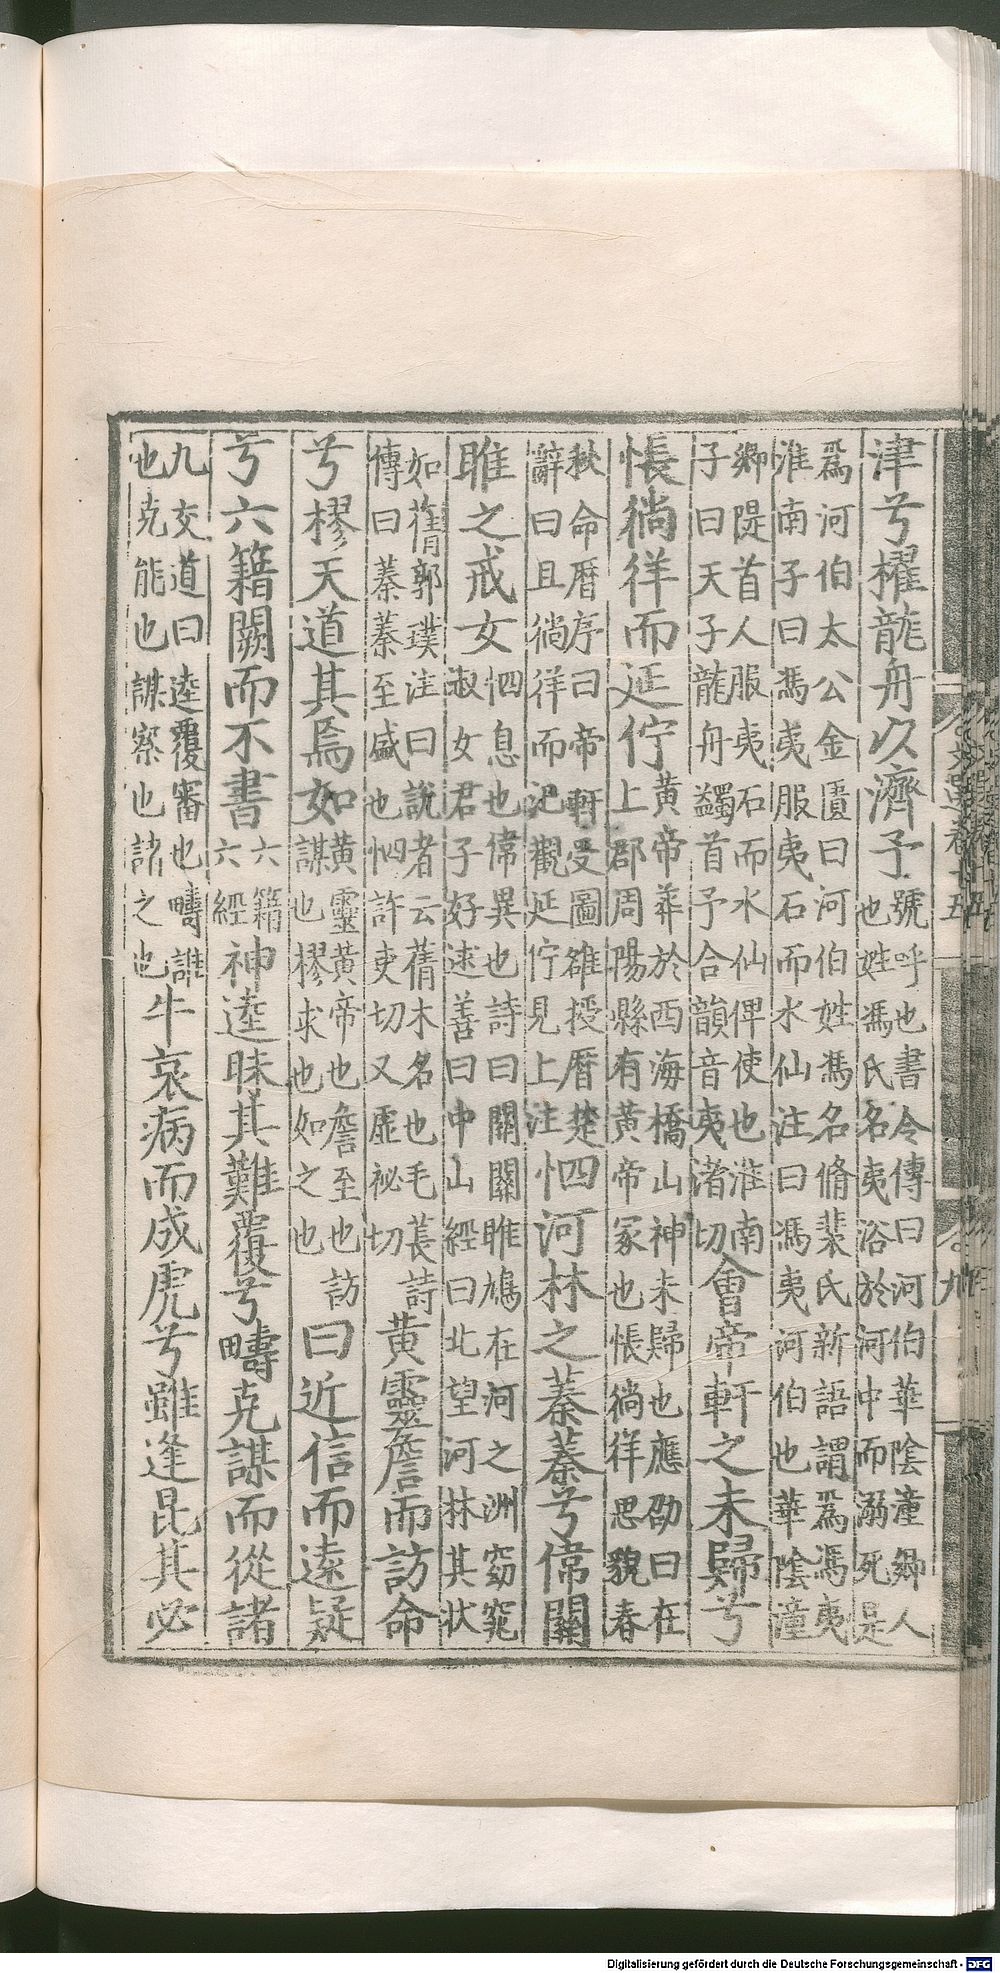 津兮櫂龍舟以濟予號呼也書令傳曰河伯華陰潼鄉人也姓馮氏名夷浴於河中而溺死是
爲河伯太公金匱曰河伯姓馮名脩裴氏新語謂爲馮夷淮南子曰馮夷服夷石而水仙注曰馮夷河伯也華陰潼
鄉隄首人服夷石而水仙俾使也淮南子曰天子龍舟鷁首予合韻音夷渚切會帝軒之未歸兮
悵徜徉而延佇黃帝葬於西海橋山神未歸也應劭曰在上郡周陽縣有黃帝冢也悵徜徉思貌春
秋命曆序曰帝軒受圖雒授曆楚辭曰且徜徉而汜觀延佇見上注怬河林之蓁蓁兮偉關
雎之戒女怬息也偉異也詩曰關關雎鳩在河之洲窈窕淑女君子好逑善曰中山經曰北望河林其狀
如蒨郭璞注曰說者云蒨木名也毛萇詩傳曰蓁蓁至盛也怬許吏切又虛祕切黃靈詹而訪命
兮樛天道其焉如黃靈黃帝也詹至也訪謀也樛求也如之也曰近信而遠疑
兮六籍闕而不書六籍六經神逵昧其難覆兮疇克謀而從諸
九交道曰逵覆審也疇誰也克能也謀察也諸之也牛哀病而成虎兮雖逢昆其必
文選卷十五
九
Digitalisierung gefördert durch die Deutsche Forschungsgemeinschaft - DFG